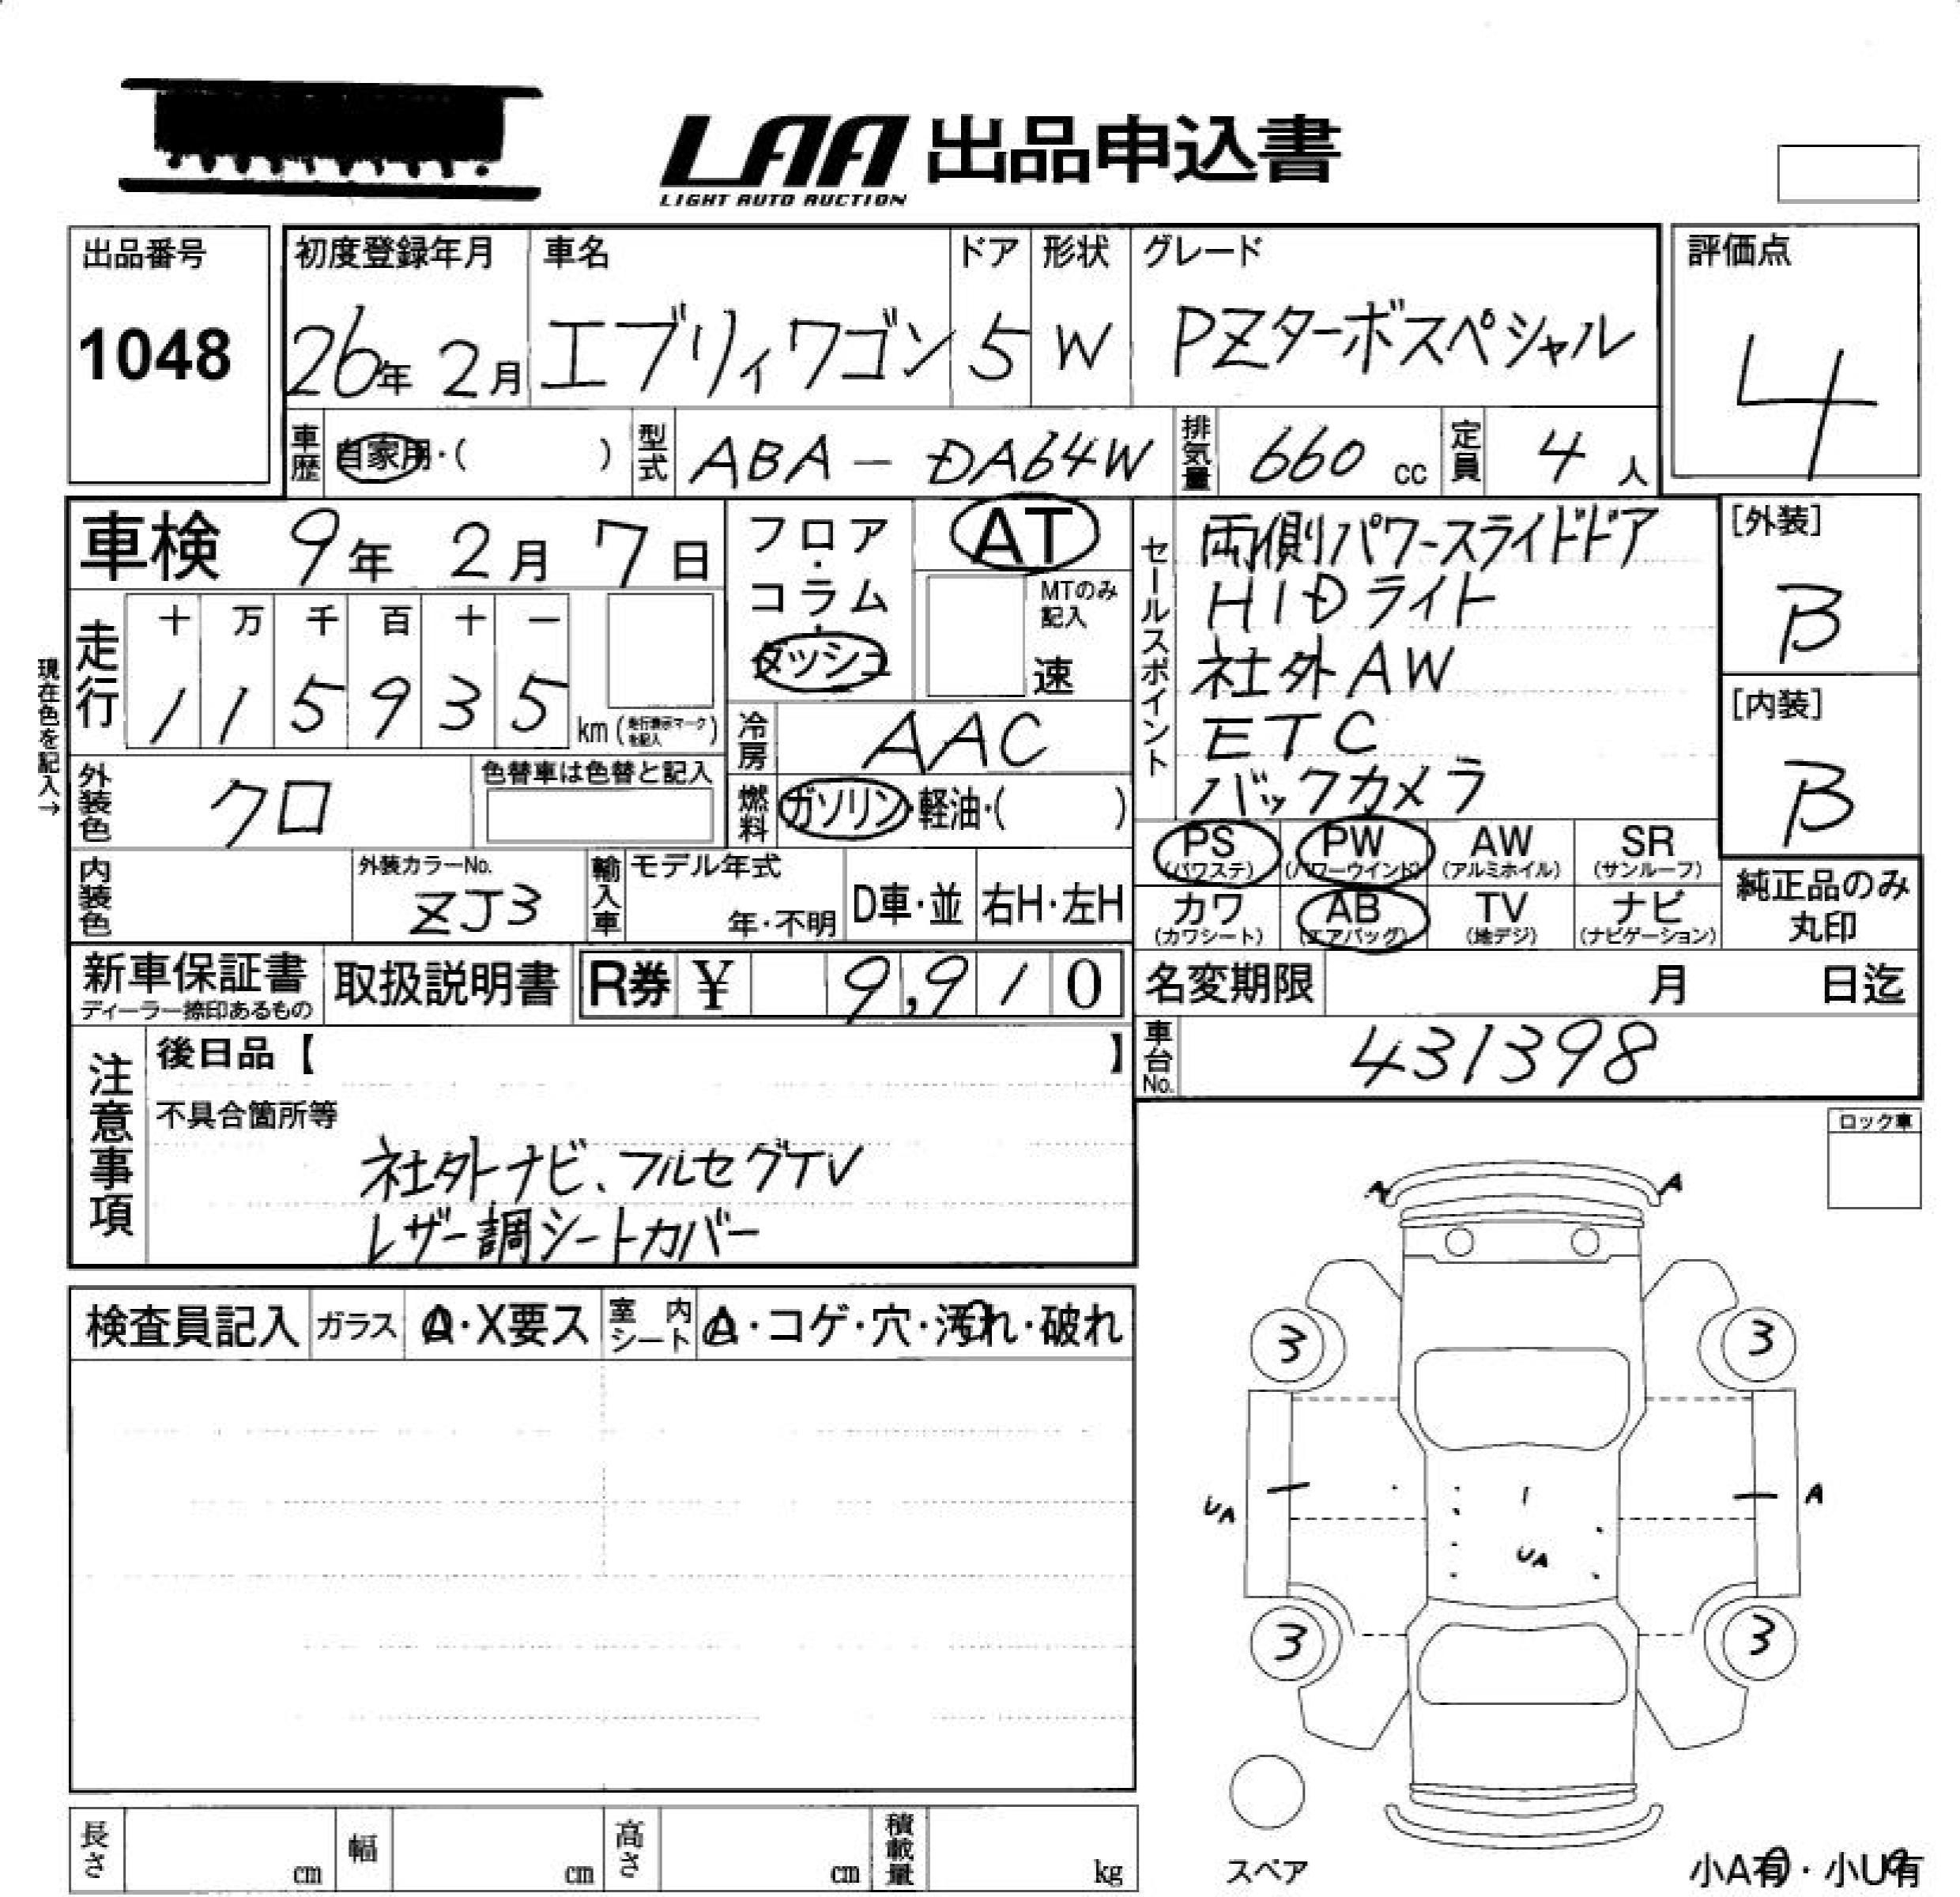 LAA 出品申込書
LIGHT AUTO AUCTION
出品番号
1048
初度登録年月
26年 2月
車名
エブリィワゴン
ドア
5
形状
W
グレード
PZターボスペシャル
評価点
4
車歴
自家用・( )
型式
ABA - DA64W
排気量
660 cc
定員
4 人
車検 9年 2月 7日
フロア・コラム・ダッシュ
AT
MTのみ記入
速
セールスポイント
両側パワースライドドア
HIDライト
社外AW
ETC
バックカメラ
[外装]
B
[内装]
B
現在色を記入→
走行
十 万 千 百 十 一
1 1 5 9 3 5
km (走行表示マークを記入)
冷房
AAC
燃料
ガソリン・軽油・( )
外装色
クロ
色替車は色替と記入
PS (パワステ)
PW (パワーウインド)
AW (アルミホイル)
SR (サンルーフ)
カワ (カワシート)
AB (エアバッグ)
TV (地デジ)
ナビ (ナビゲーション)
純正品のみ
丸印
内装色
外装カラーNo.
ZJ3
輸入車
モデル年式
年・不明
D車・並
右H・左H
新車保証書
ディーラー捺印あるもの
取扱説明書
R券 ¥ 9,9 1 0
名変期限 月 日迄
車台No.
431398
注意事項
後日品【 】
不具合箇所等
社外ナビ、フルセグTV
レザー調シートカバー
ロック車
A A
3 3
UA A
UA
3 3
検査員記入
ガラス
A・X要ス
室内シート
A・コゲ・穴・汚れ・破れ
長さ cm
幅 cm
高さ cm
積載量 kg
スペア
小A有・小U有